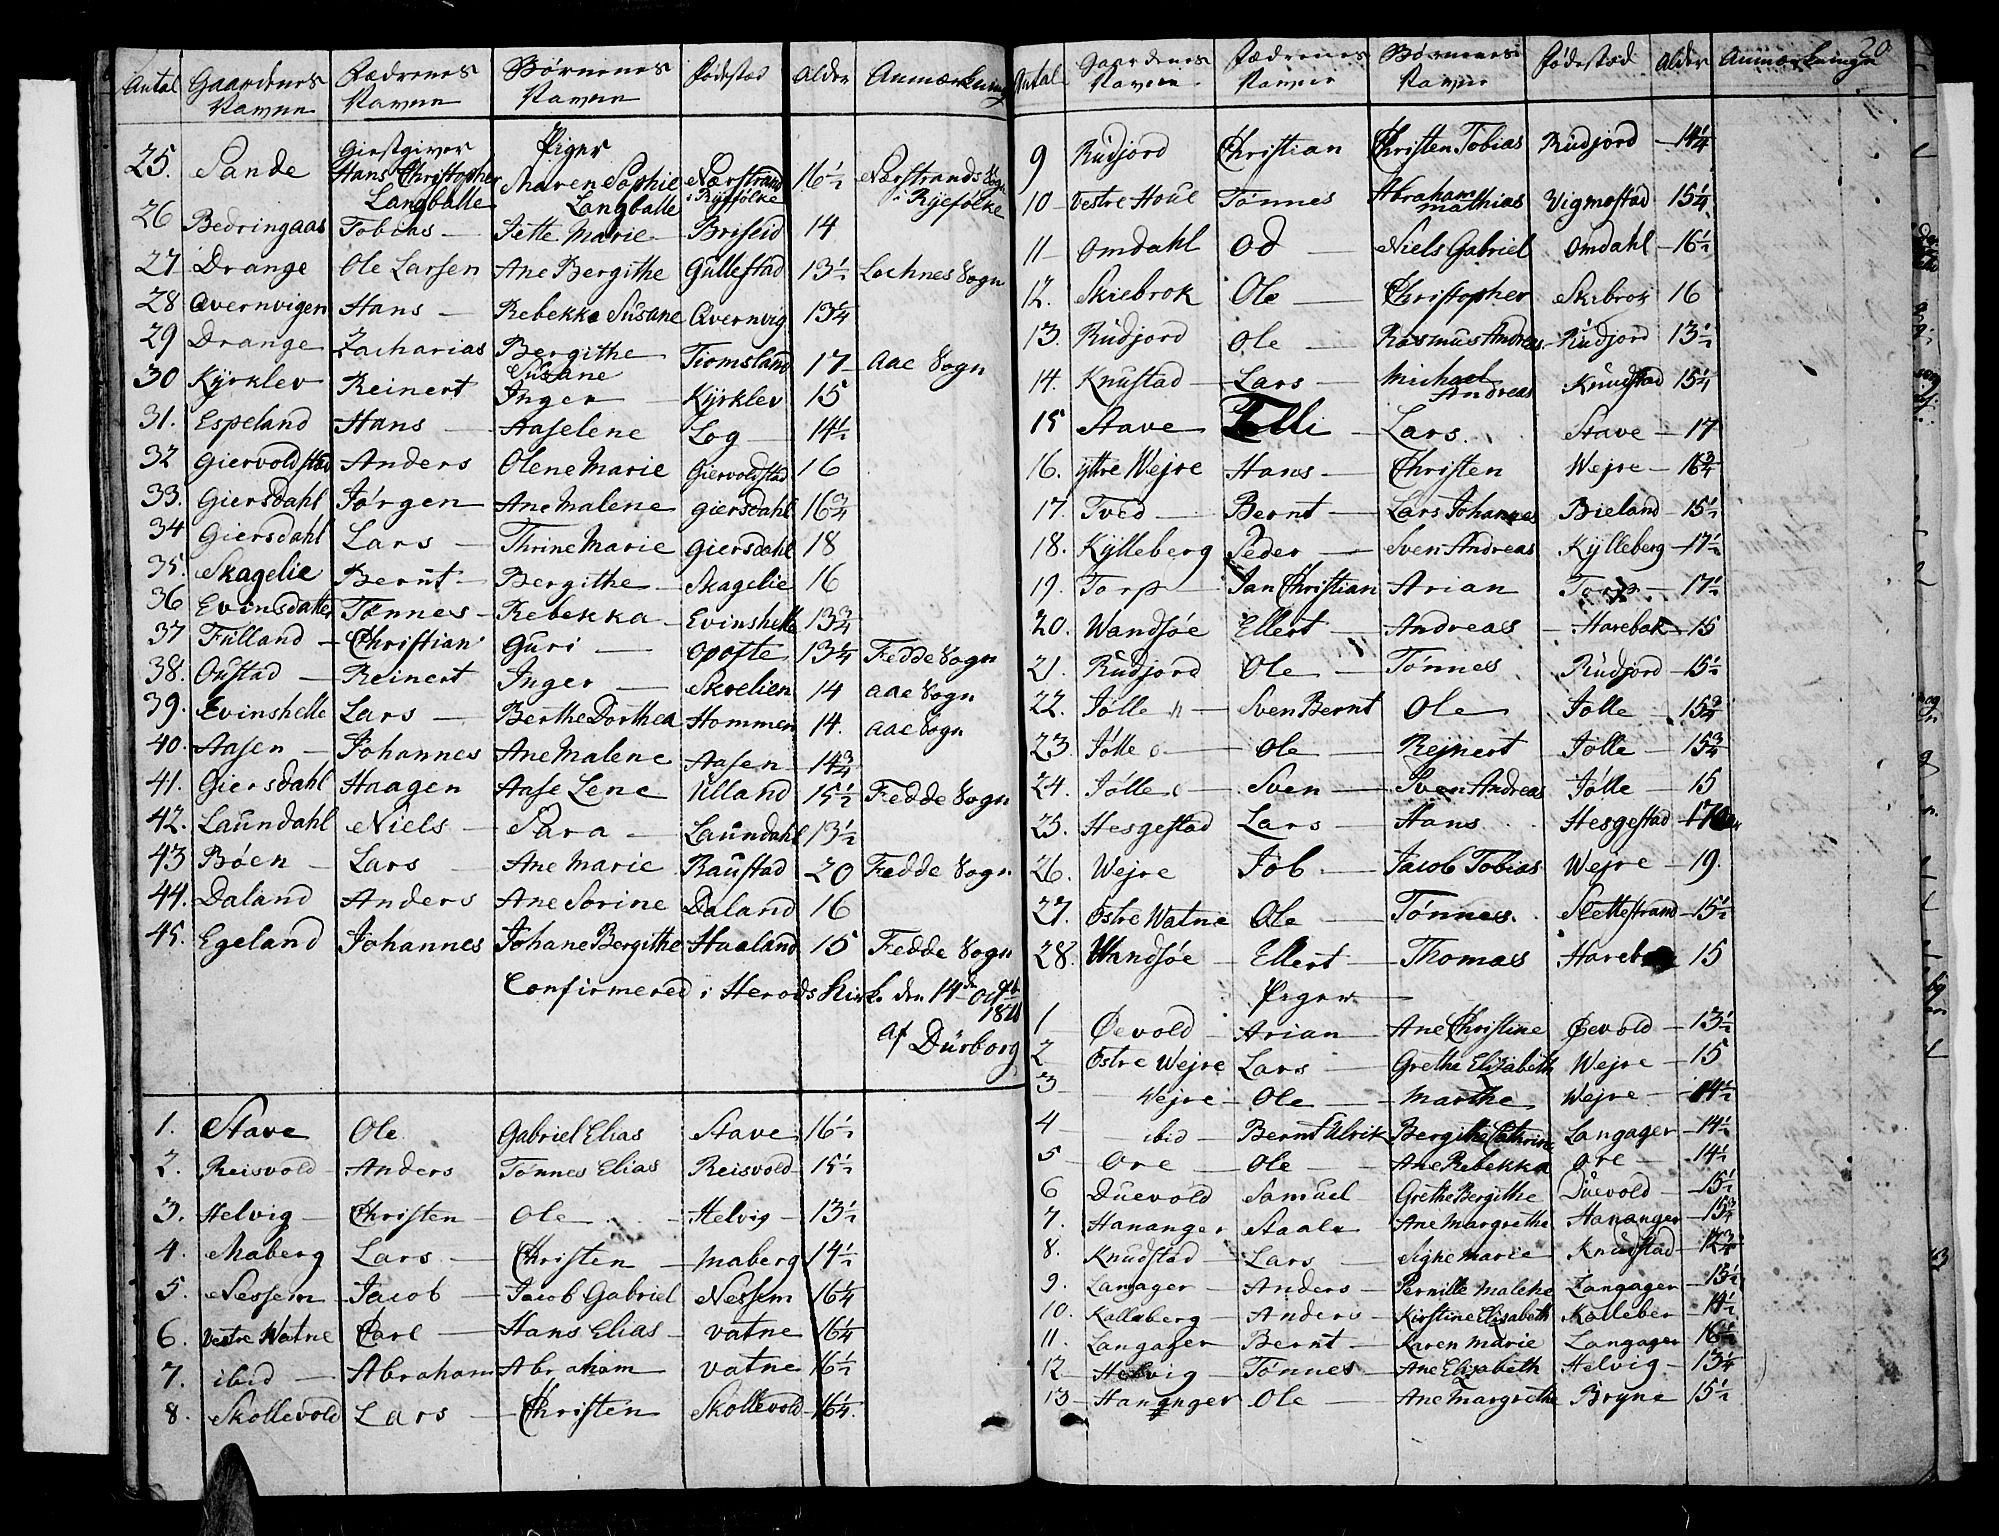 Antal Gaardenes Navne Fædrenes Navne Børnenes Navne Fødestad Alder Anmærkning
25. Sande Giestgiver Hans Christopher Langballe Piger Maren Sophie Langballe Nærstrand i Ryefølke 16½ Nærstrands Sogn i Ryefølke
26 Bedringaas Tobias — Jette Marie — Briseid 14
27 Drange Ole Larsen Ane Bergithe Gullestad 13½ Lochnes Sogn
28 Qvernvigen Hans — Rebekka Susane Qvernvig 13¼
29 Drange Zacharias Bergithe Susane Tiomsland 17 — Aae Sogn
30 Kÿrklev Reinert Inger — Kÿrklev 15
31. Espeland Hans — Aaselene Log — 14½
32 Giervoldstad Anders Olene Marie Giervoldstad 16
33. Giersdahl Jørgen — Ane Malene Giersdahl 16¾
34 Giersdahl Lars — Thrine Marie Giersdahl 18
35. Skagelie Bernt — Bergithe — Skagelie 16
36 Tønnes — Rebekka — Evinshelle 13¾
37 Fulland — Christian Guri — Opofte 13¼ Fedde Sogn
38. Oustad — Reinert Inger — Skrelien 14 Aae Sogn
39. Evinshelle Lars — Berthe Dorthea Hommen 14. Aae Sogn
40. Aasen — Johannes Ane Malene Aasen — 14¾
41. Giersdahl Haagen Aase Lene Ulland 15½ Fedde Sogn
42. Laundahl Niels — Sara — Laundahl 13½
43 Bøen — Lars — Ane Marie Raustad 20 Fedde Sogn
44. Daland Anders Ane Sorine Daland 16
45. Egeland Johannes Johane Bergithe Haaland 15 Fedde Sogn
Confirmered i Herods Kirk. den 14de
af Dürborg
1. Stave Ole Gabriel Elias Stave 16½
2. Reisvold Anders Tønnes Elias Reisvold 15½
3. Helvig — Christen — Ole — Helvig — 13½
4. Maberg Lars — Christen — Maberg 14½
5. Nessem — Jacob — Jacob Gabriel Nessem 16¼
6. Vestre Watne Carl — Hans Elias — Vatne 16¼
7. ibid — Abraham Abraham Vatne 16½
8. Skollevold Lars — Christen Skollevold 16¼.
20
Antal Gaardenes Navne Fædrenes Navne Børnenes Navne Fødestæd Alder Anmærkninge
9 Rudjord Christian Christen Tobias Rudjord — 14¼
10 — Vestre Houl Tønnes Abraham Mathias Vigmostad 15¼
11 — Omdahl Od — Niels Gabriel Omdahl — 16½
12. Skiebrok Ole — Christopher Skibrok 16
13. Rudjord Ole — Rasmus Andreas Rudjord 13½
14. Knustad — Lars — Michael Andreas Knudstad 15¼
15 Stave — Lars. Stave — 17
16. ÿttre Wejre Hans — Christen Wejre — 16¾
17. Tved — Bernt — Lars Johannes Bieland — 15½
18. Kÿlleberg Peder — Sven Andreas Kÿlleberg — 17½
19. Torp — Jan Christian Arian Torp — 17½
20. Wandsøe Ellert — Andreas — Harebak — 15
21. Rudjord Ole — Tønnes Rudjord — 15½
22. Jølle Sven Bernt Ole Jølle — 15¾
23 Jølle — Ole Rejnert Jølle — 15¾
24. Jølle — Sven — Sven Andreas Jølle — 15
25. Hesgestad Lars — Hans Hesgestad
26. Wejre Job — Jacob Tobias Wejre — 19.
27. Østre Watne Ole — Tønnes Slettestrand — 15½
28. Wandsøe — Ellert — Thomas 15
Piger —
1 — Øevold — Arian — Ane Christine Øevold — 13½
2 — Østre Wejre Lars — Grethe Elizabeth Wejre — 15
3 — Wejre — Ole — Marthe Wejre — 14½
4 — ibid — Bernt Ulrik Bergithe Cathrine Langager — 14½
5 — Ore — Ole — Ane Rebekka Ore — 14½
6 Duevold Samuel — Grethe Bergithe Duevold — 15½
7. Hananger — Staale Ane Margrethe Hananger — 15¾
8. Knudstad — Lars — Signe Marie Knudstad
9. Langager — Anders — Pernille Malene Langager — 15½
10. Kalleberg — Anders — Kirstine Elisabeth Kalleber 14½
11. Langager — Bernt — Karen Marie Langager 16½
12 — Helvig — Tønnes — Ane Elizabeth Helvig — 13¼
13 — Hananger Ole — Ane Margrethe Bryne 15½